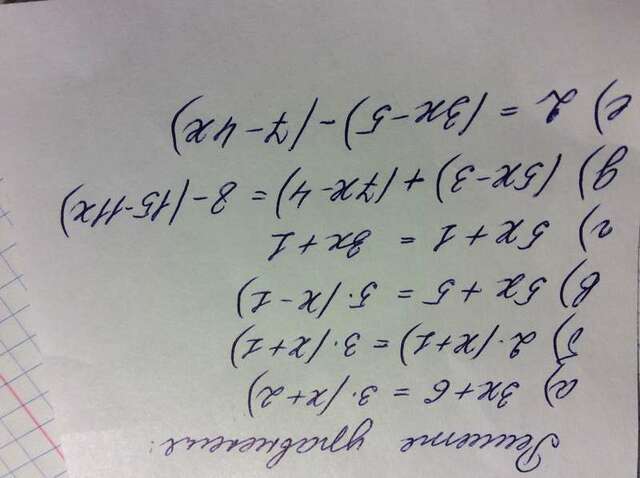 Решите уравнение:
а) 3x + 6 = 3·(x+2)
б) 2·(x+1) = 3·(x+1)
в) 5x + 5 = 5·(x-1)
г) 5x + 1 = 3x + 1
д) (5x-3) + (7x-4) = 8 - (15-11x)
е) 2 = (3x-5) - (7-4x)